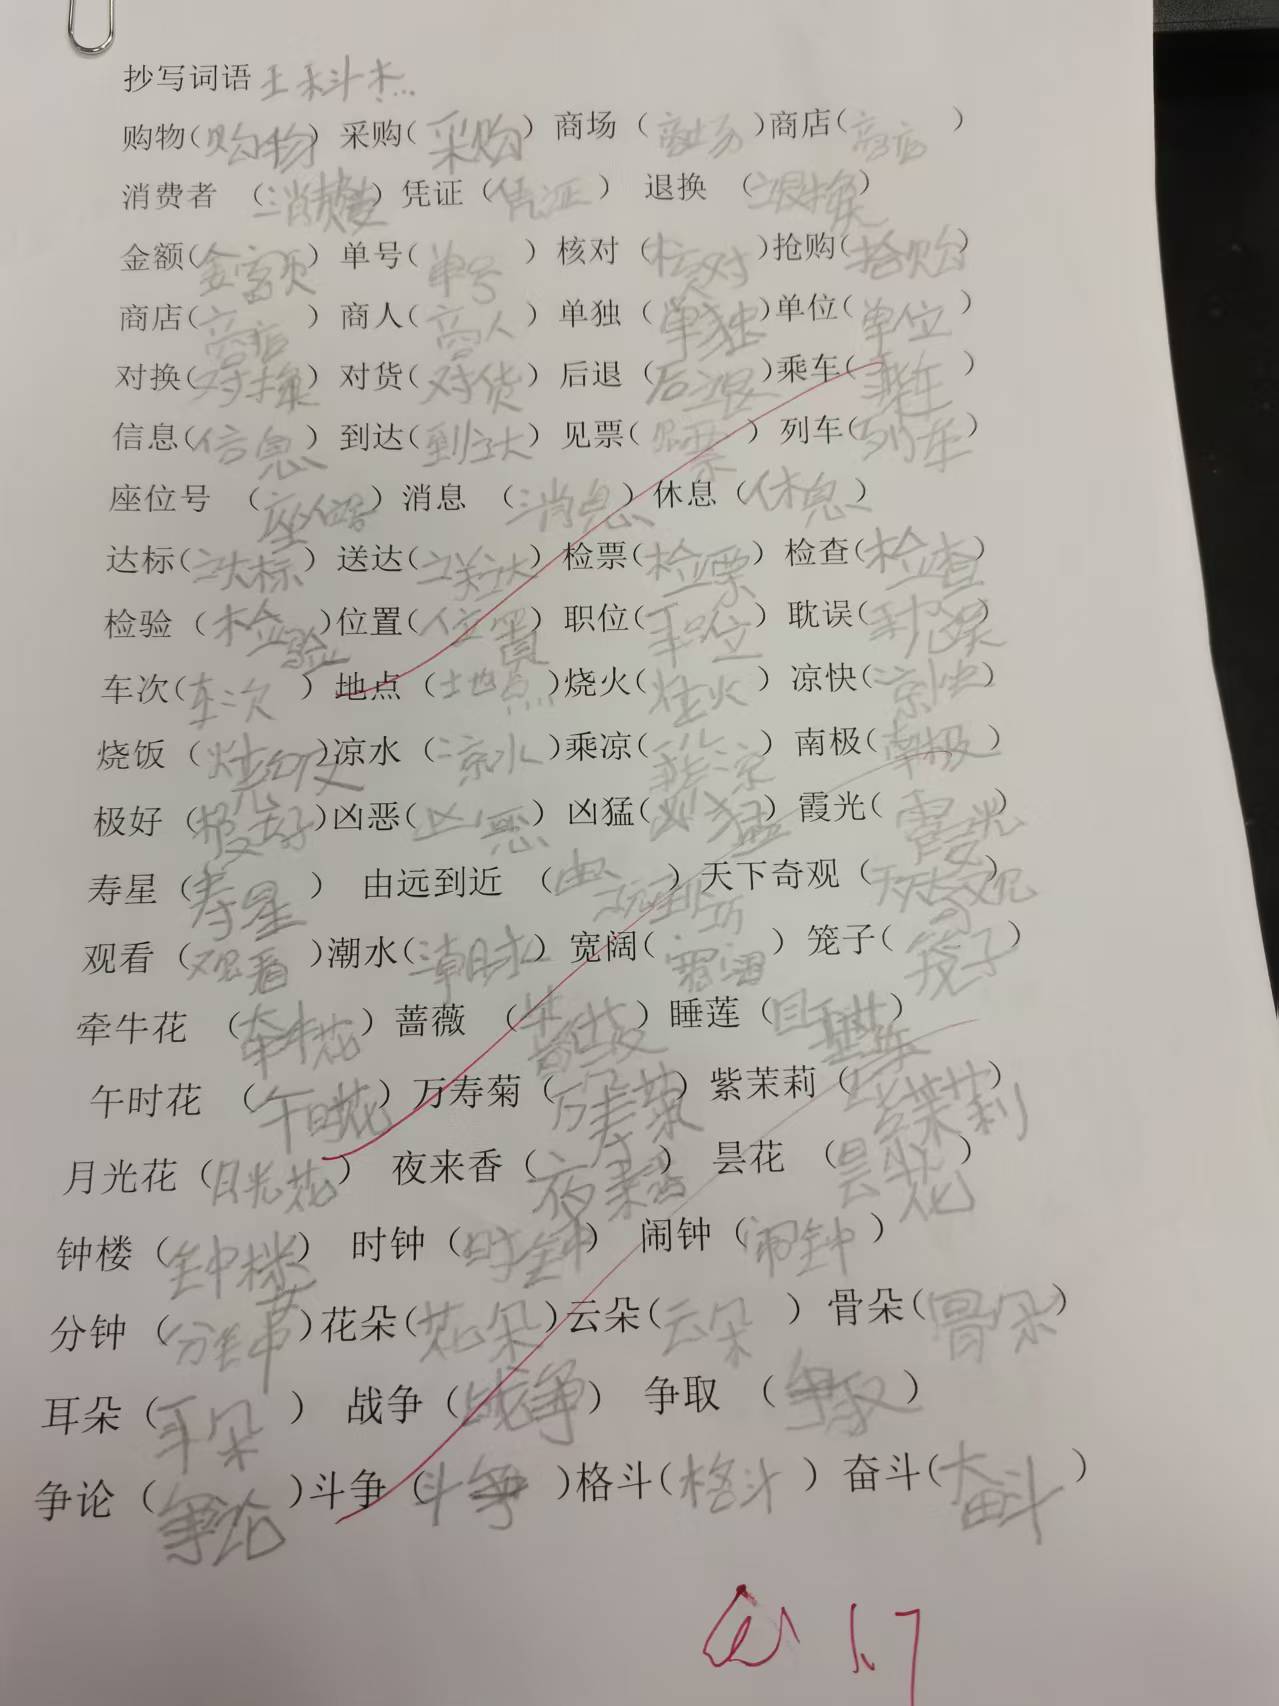 抄写词语
购物(购物) 采购(采购) 商场（商场)商店(商店)
消费者 （消费者）凭证（凭证） 退换 （退换）
金额(金额) 单号(单号) 核对（核对)抢购(抢购)
商店(商店) 商人(商人) 单独（单独)单位(单位)
对换(对换) 对货(对货) 后退（后退)乘车(乘车)
信息(信息) 到达(到达) 见票(见票) 列车(列车)
座位号 （座位号）消息 （消息）休息（休息）
达标(达标) 送达(送达) 检票(检票) 检查(检查)
检验（检验)位置(位置) 职位(职位) 耽误(耽误)
车次(车次) 地点（地点)烧火(烧火) 凉快(凉快)
烧饭（烧饭)凉水（凉水)乘凉(乘凉) 南极(南极)
极好（极好)凶恶(凶恶) 凶猛(凶猛) 霞光(霞光)
寿星（寿星） 由远到近 （由远到近）天下奇观（天下奇观）
观看（观看)潮水(潮水) 宽阔(宽阔) 笼子(笼子)
牵牛花 （牵牛花）蔷薇 （蔷薇）睡莲（睡莲）
午时花 （午时花）万寿菊（万寿菊）紫茉莉（紫茉莉）
月光花（月光花） 夜来香（夜来香） 昙花 （昙花）
钟楼（钟楼） 时钟（时钟） 闹钟（闹钟）
分钟（分钟)花朵(花朵)云朵(云朵) 骨朵(骨朵)
耳朵（耳朵） 战争（战争） 争取 （争取）
争论（争论)斗争（斗争)格斗(格斗) 奋斗(奋斗)
1.7